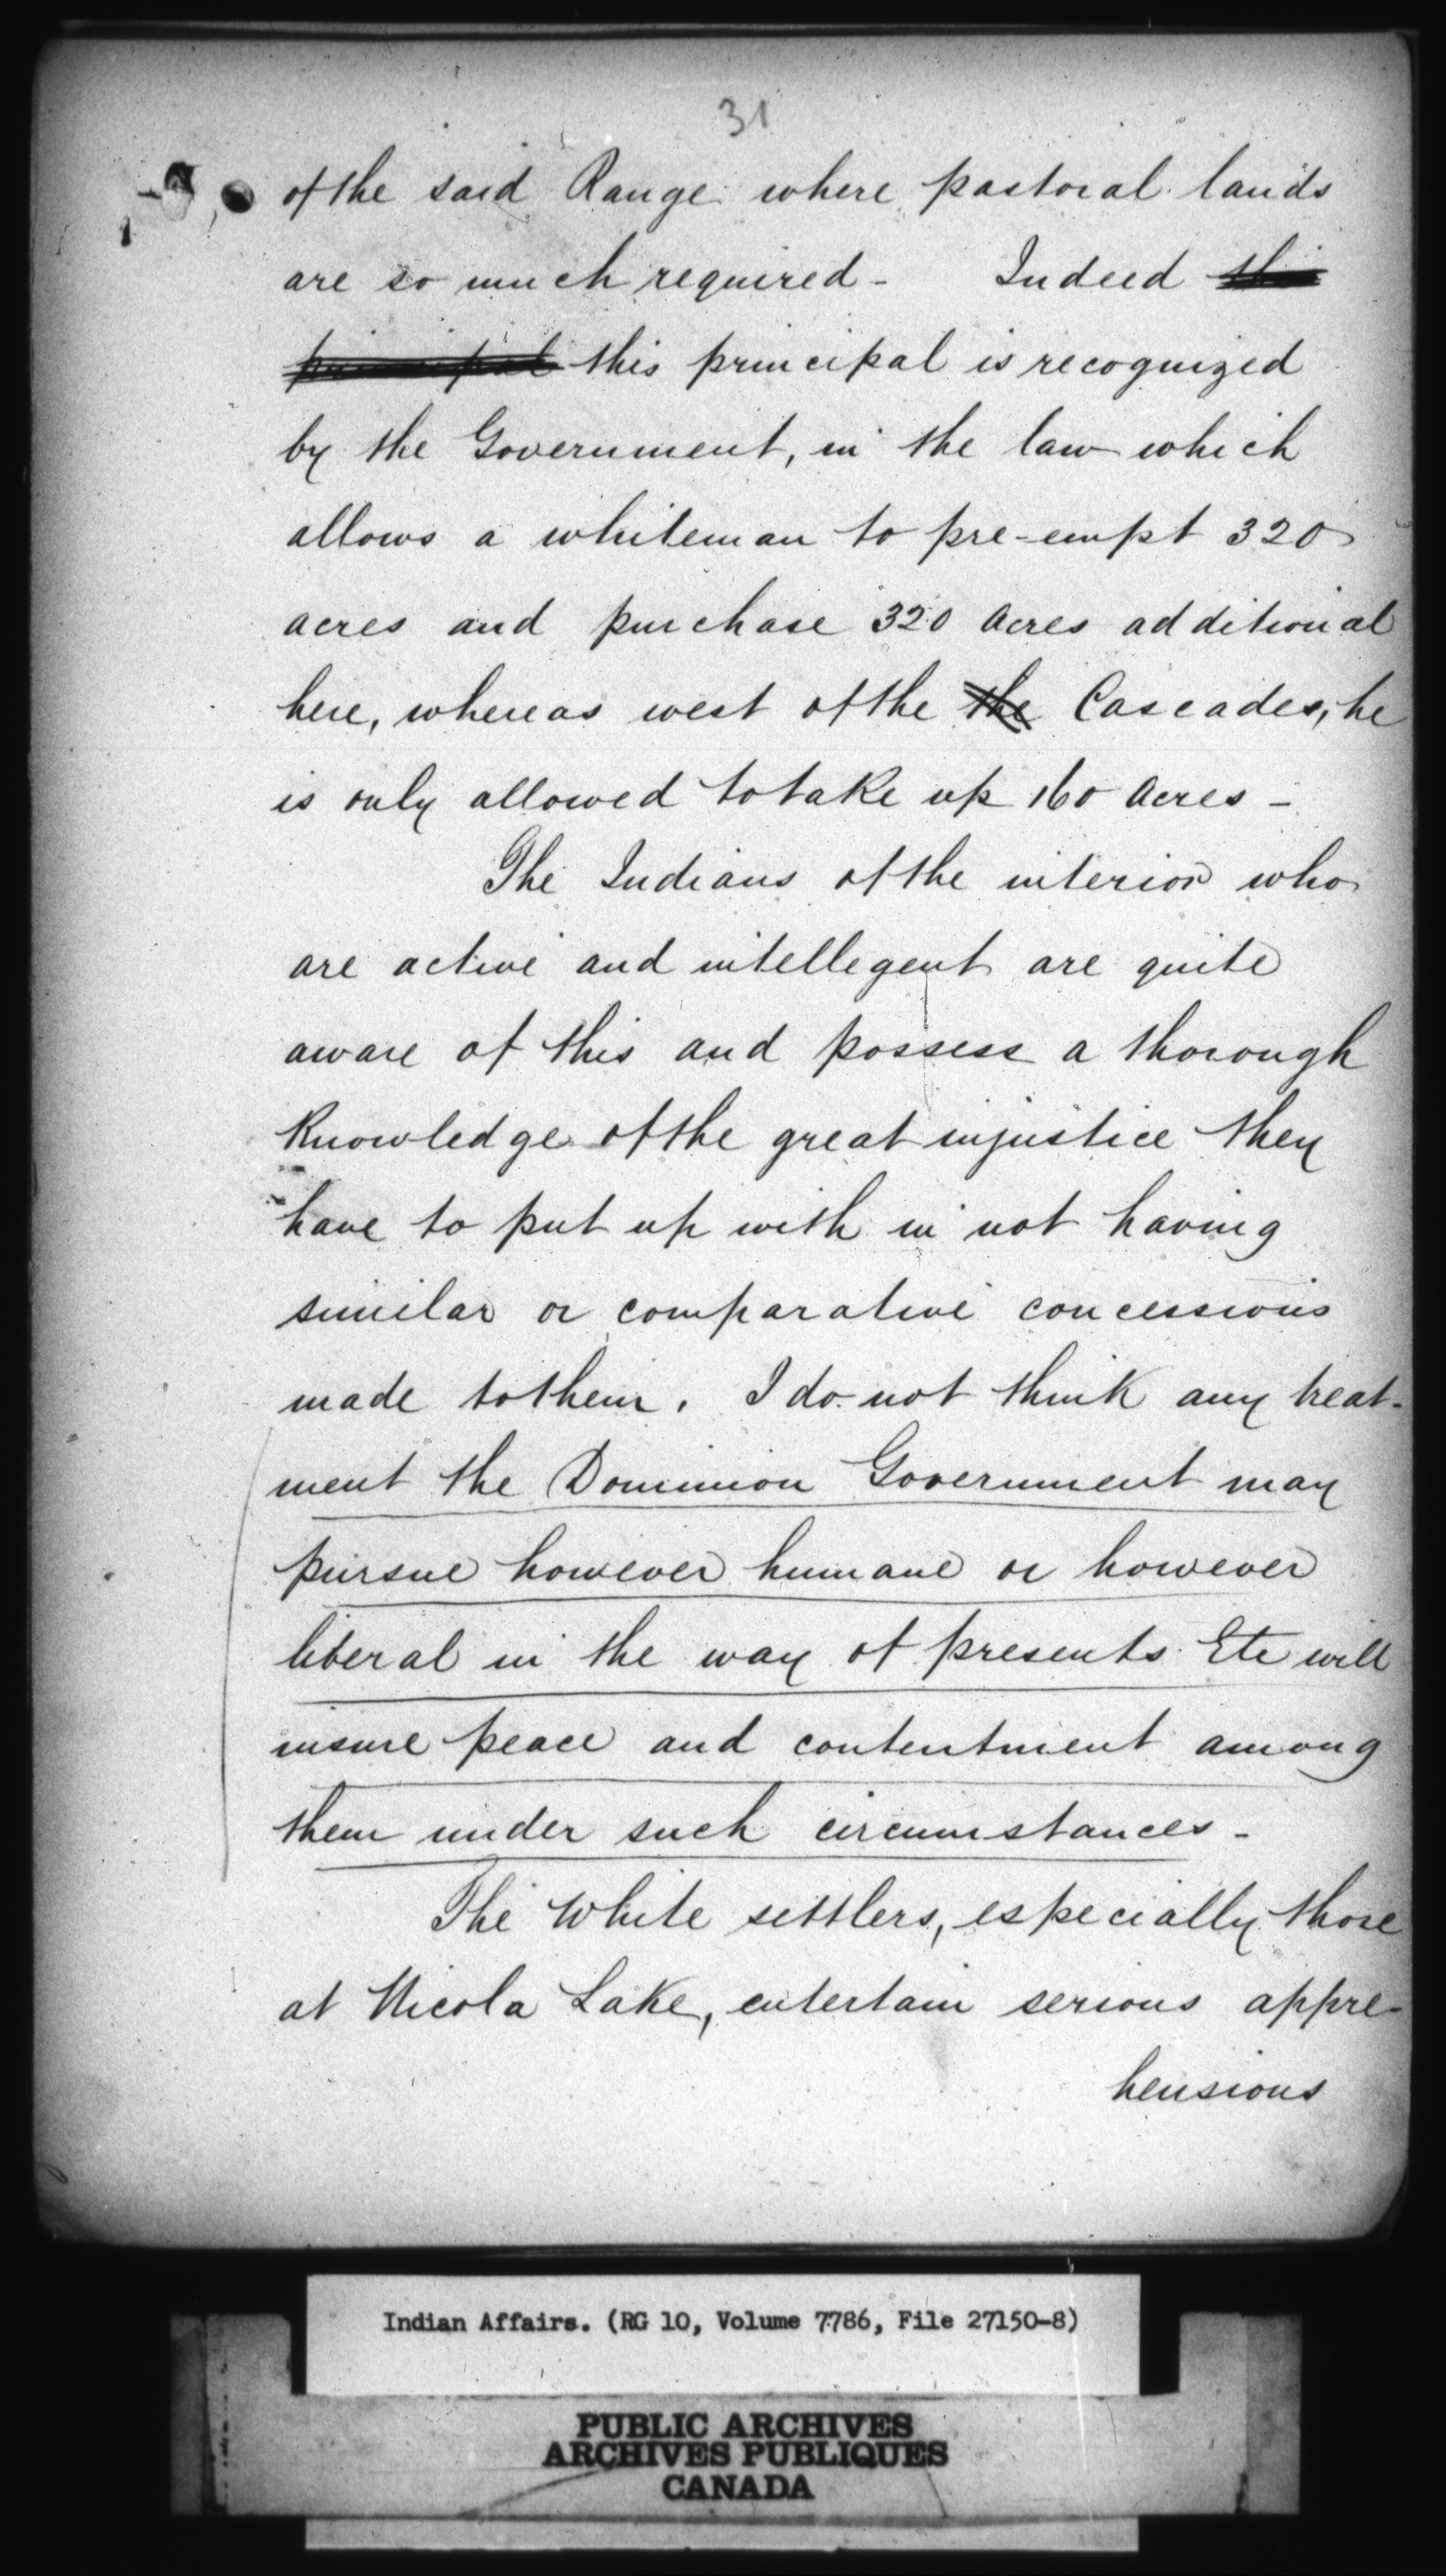 31
of the said Range where pastoral lands
are so much required - Indeed this
principal this principal is recognized
by the Government, in the law which
allows a whiteman to pre-empt 320
acres and purchase 320 acres additional
here, whereas west of the the Cascades, he
is only allowed to take up 160 Acres -
The Indians of the interior who
are active and intellegent are quite
aware of this and possess a thorough
Knowledge of the great injustice they
have to put up with in not having
similar or comparative concessions
made to them. I do not think any treat-
ment the Dominion Government may
pursue however humane or however
liberal in the way of presents Etc will
insure peace and contentment among
them under such circumstances -
The White settlers, especially those
at Nicola Lake, entertain serious appre-
hensions
Indian Affairs. (RG 10, Volume 7786, File 27150-8)
PUBLIC ARCHIVES
ARCHIVES PUBLIQUES
CANADA